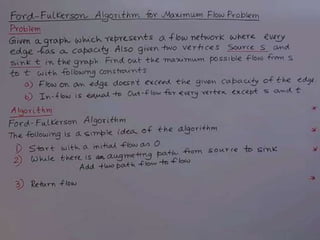 Ford-Fulkerson Algorithm for Maximum Flow Problem
Problem
Given a graph which represents a flow network where every
edge has a capacity Also given two vertices Source s and
sink t in the graph Find out the maximum possible flow from s
to t with following constraints
a) Flow on an edge doesn't exceed the given capacity of the edge
b) In-flow is equal to Out-flow for every vertex except s and t
Algorithm
Ford-Fulkerson Algorithm
The following is a simple idea of the algorithm
1) Start with a initial flow as 0
2) While there is an augmenting path from source to sink
Add this path flow to flow
3) Return flow